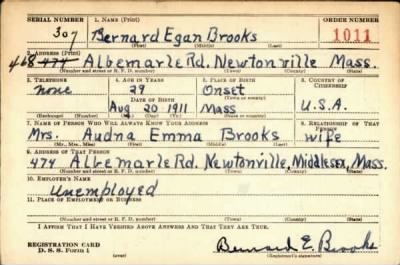 SERIAL NUMBER 1. NAME (Print) ORDER NUMBER
307 Bernard Egan Brooks 1011
(First) (Middle) (Last)
2. ADDRESS (Print)
468 474 Albemarle Rd. Newtonville Mass.
(Number and street or R. F. D. number) (Town) (County) (State)
3. TELEPHONE 4. AGE IN YEARS 5. PLACE OF BIRTH 6. COUNTRY OF CITIZENSHIP
none 29 Onset
DATE OF BIRTH (Town or county)
Aug 20 1911 Mass U.S.A.
(Exchange) (Number) (Mo.) (Day) (Yr.) (State or country)
7. NAME OF PERSON WHO WILL ALWAYS KNOW YOUR ADDRESS 8. RELATIONSHIP OF THAT PERSON
Mrs. Audna Emma Brooks wife
(Mr., Mrs., Miss) (First) (Middle) (Last)
9. ADDRESS OF THAT PERSON
474 Albemarle Rd. Newtonville, Middlesex, Mass.
(Number and street or R. F. D. number) (Town) (County) (State)
10. EMPLOYER'S NAME
unemployed
11. PLACE OF EMPLOYMENT OR BUSINESS
(Number and street or R. F. D. number) (Town) (County) (State)
I AFFIRM THAT I HAVE VERIFIED ABOVE ANSWERS AND THAT THEY ARE TRUE.
REGISTRATION CARD
D. S. S. Form 1 Bernard E. Brooks
(Registrant's signature)